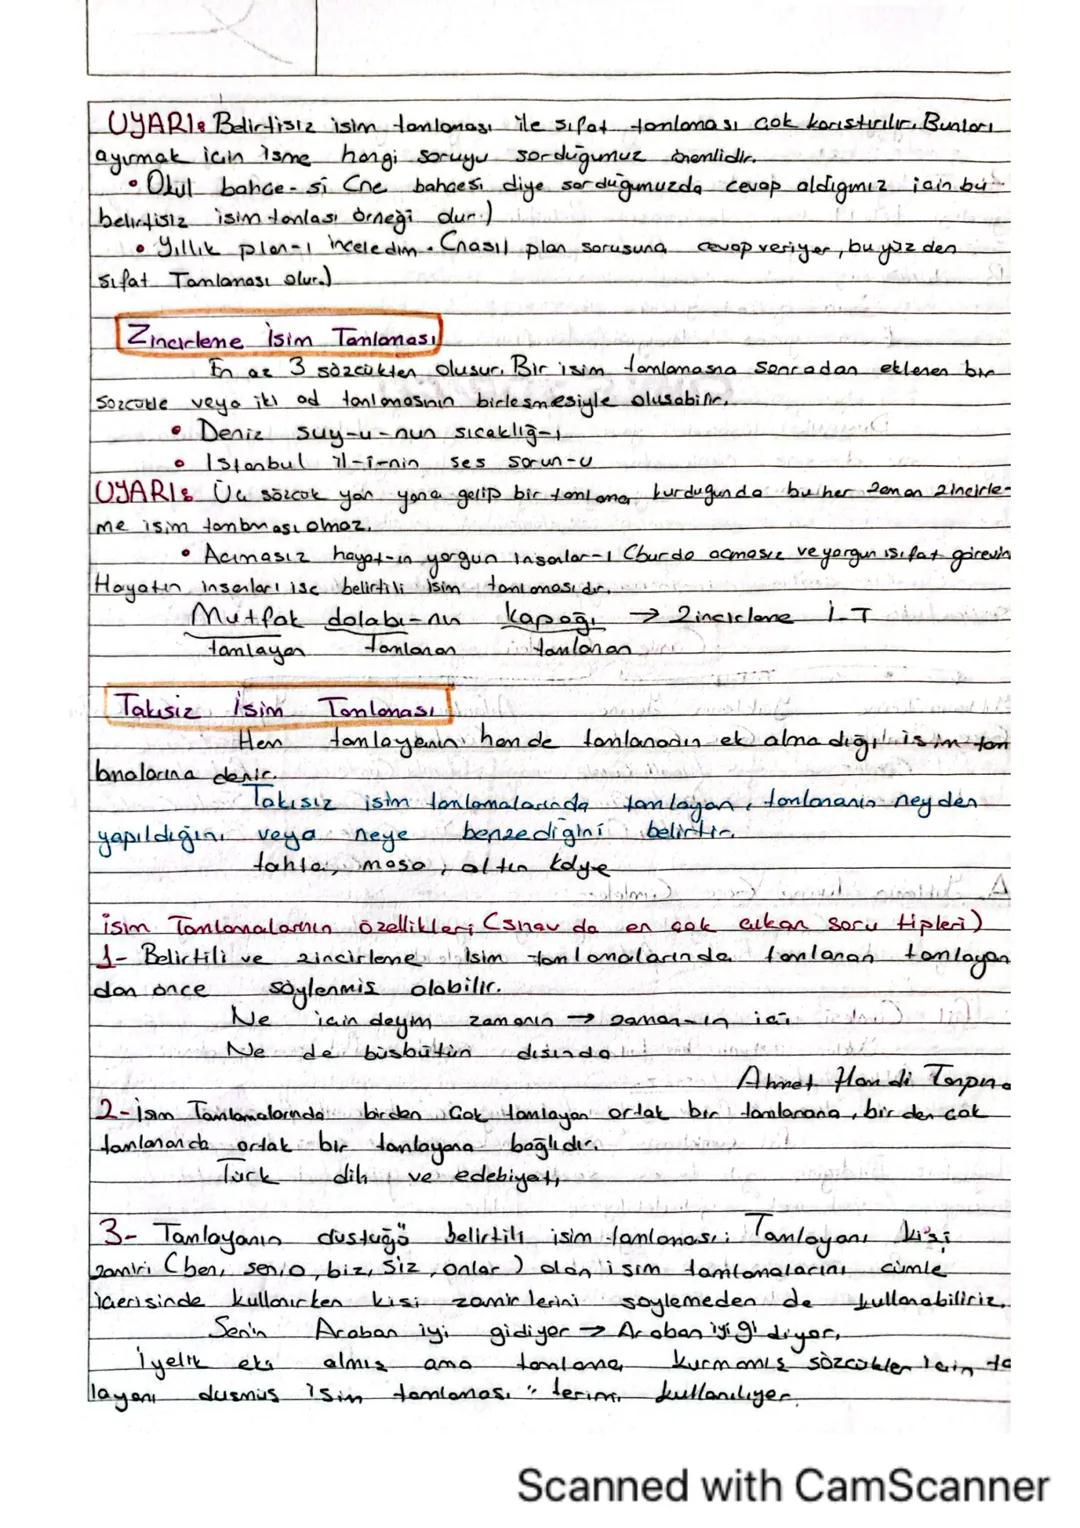 UYARI: Belirtisiz isim tamlaması ile sıfat tamlaması çok karıştırılır. Bunları
ayırmak için isme hangi soruyu sorduğumuz önemlidir.
• Okul bahçe-si (ne bahçesi diye sorduğumuzda cevap aldığımız için bu
belirtisiz isim tamlası örneği dur.)
• Yıllık plan-ı inceledim. (nasıl plan sorusuna cevap veriyor, bu yüzden
sıfat Tamlaması olur.)
Zincirleme İsim Tamlaması
En az 3 sözcükten oluşur. Bir isim tamlamasna sonradan eklenen bir
sözcükle veya iki ad tamlamasının birleşmesiyle oluşabilir.
• Deniz suy-u-nun sıcaklığ-ı
• İstanbul il-i-nin ses sorun-u
UYARI: Üç sözcük yan yana gelip bir tamlama kurduğunda bu her zaman zincirle-
me isim tamlması olmaz.
• Acımasız hayat-ın yorgun insanlar-ı (burda acmasız ve yorgun sıfat görevin
Hayatın insanları ise belirtili isim tamlamasıdır.
Mutfak dolabı-nın kapağı → Zincirleme İ.T
tamlayan tamlanan tamlanan
Takısız İsim Tamlaması
Hem tamlayanın hem de tamlananın ek almadığı isim tam
lmalarına denir.
Takısız isim tamlamalarında tamlayan, tamlananın neyden
yapıldığını veya neye benzediğini belirtir.
tahta, masa, altın kolye
isim Tamlamalarının özellikleri (sınav da en çok çıkan soru tipleri)
1- Belirtili ve zincirleme isim tamlamalarında tamlanan tamlayan
dan önce söylenmiş olabilir.
Ne içindeyim zamanın → zaman-ın içi
Ne de büsbütün dışında
Ahmet Hamdi Tanpına
2- isim Tamlamalarında birden çok tamlayan ortak bir tamlanana, birden çok
tamlananda ortak bir tamlayana bağlıdır.
Türk dili ve edebiyatı
3- Tamlayanın düştüğü belirtili isim tamlaması: Tamlayanı kişi
zamiri (ben, sen, o, biz, siz, onlar) olan isim tamlamalarını cümle
içerisinde kullanırken kişi zamirlerini söylemeden de kullanabiliriz.
Senin Araban iyi gidiyor → Araban iyi gidiyor.
İyelik eki almış ama tamlama kurmamış sözcükler için ta
layanı düşmüş isim tamlaması" terimi kullanılıyor.
Scanned with CamScanner